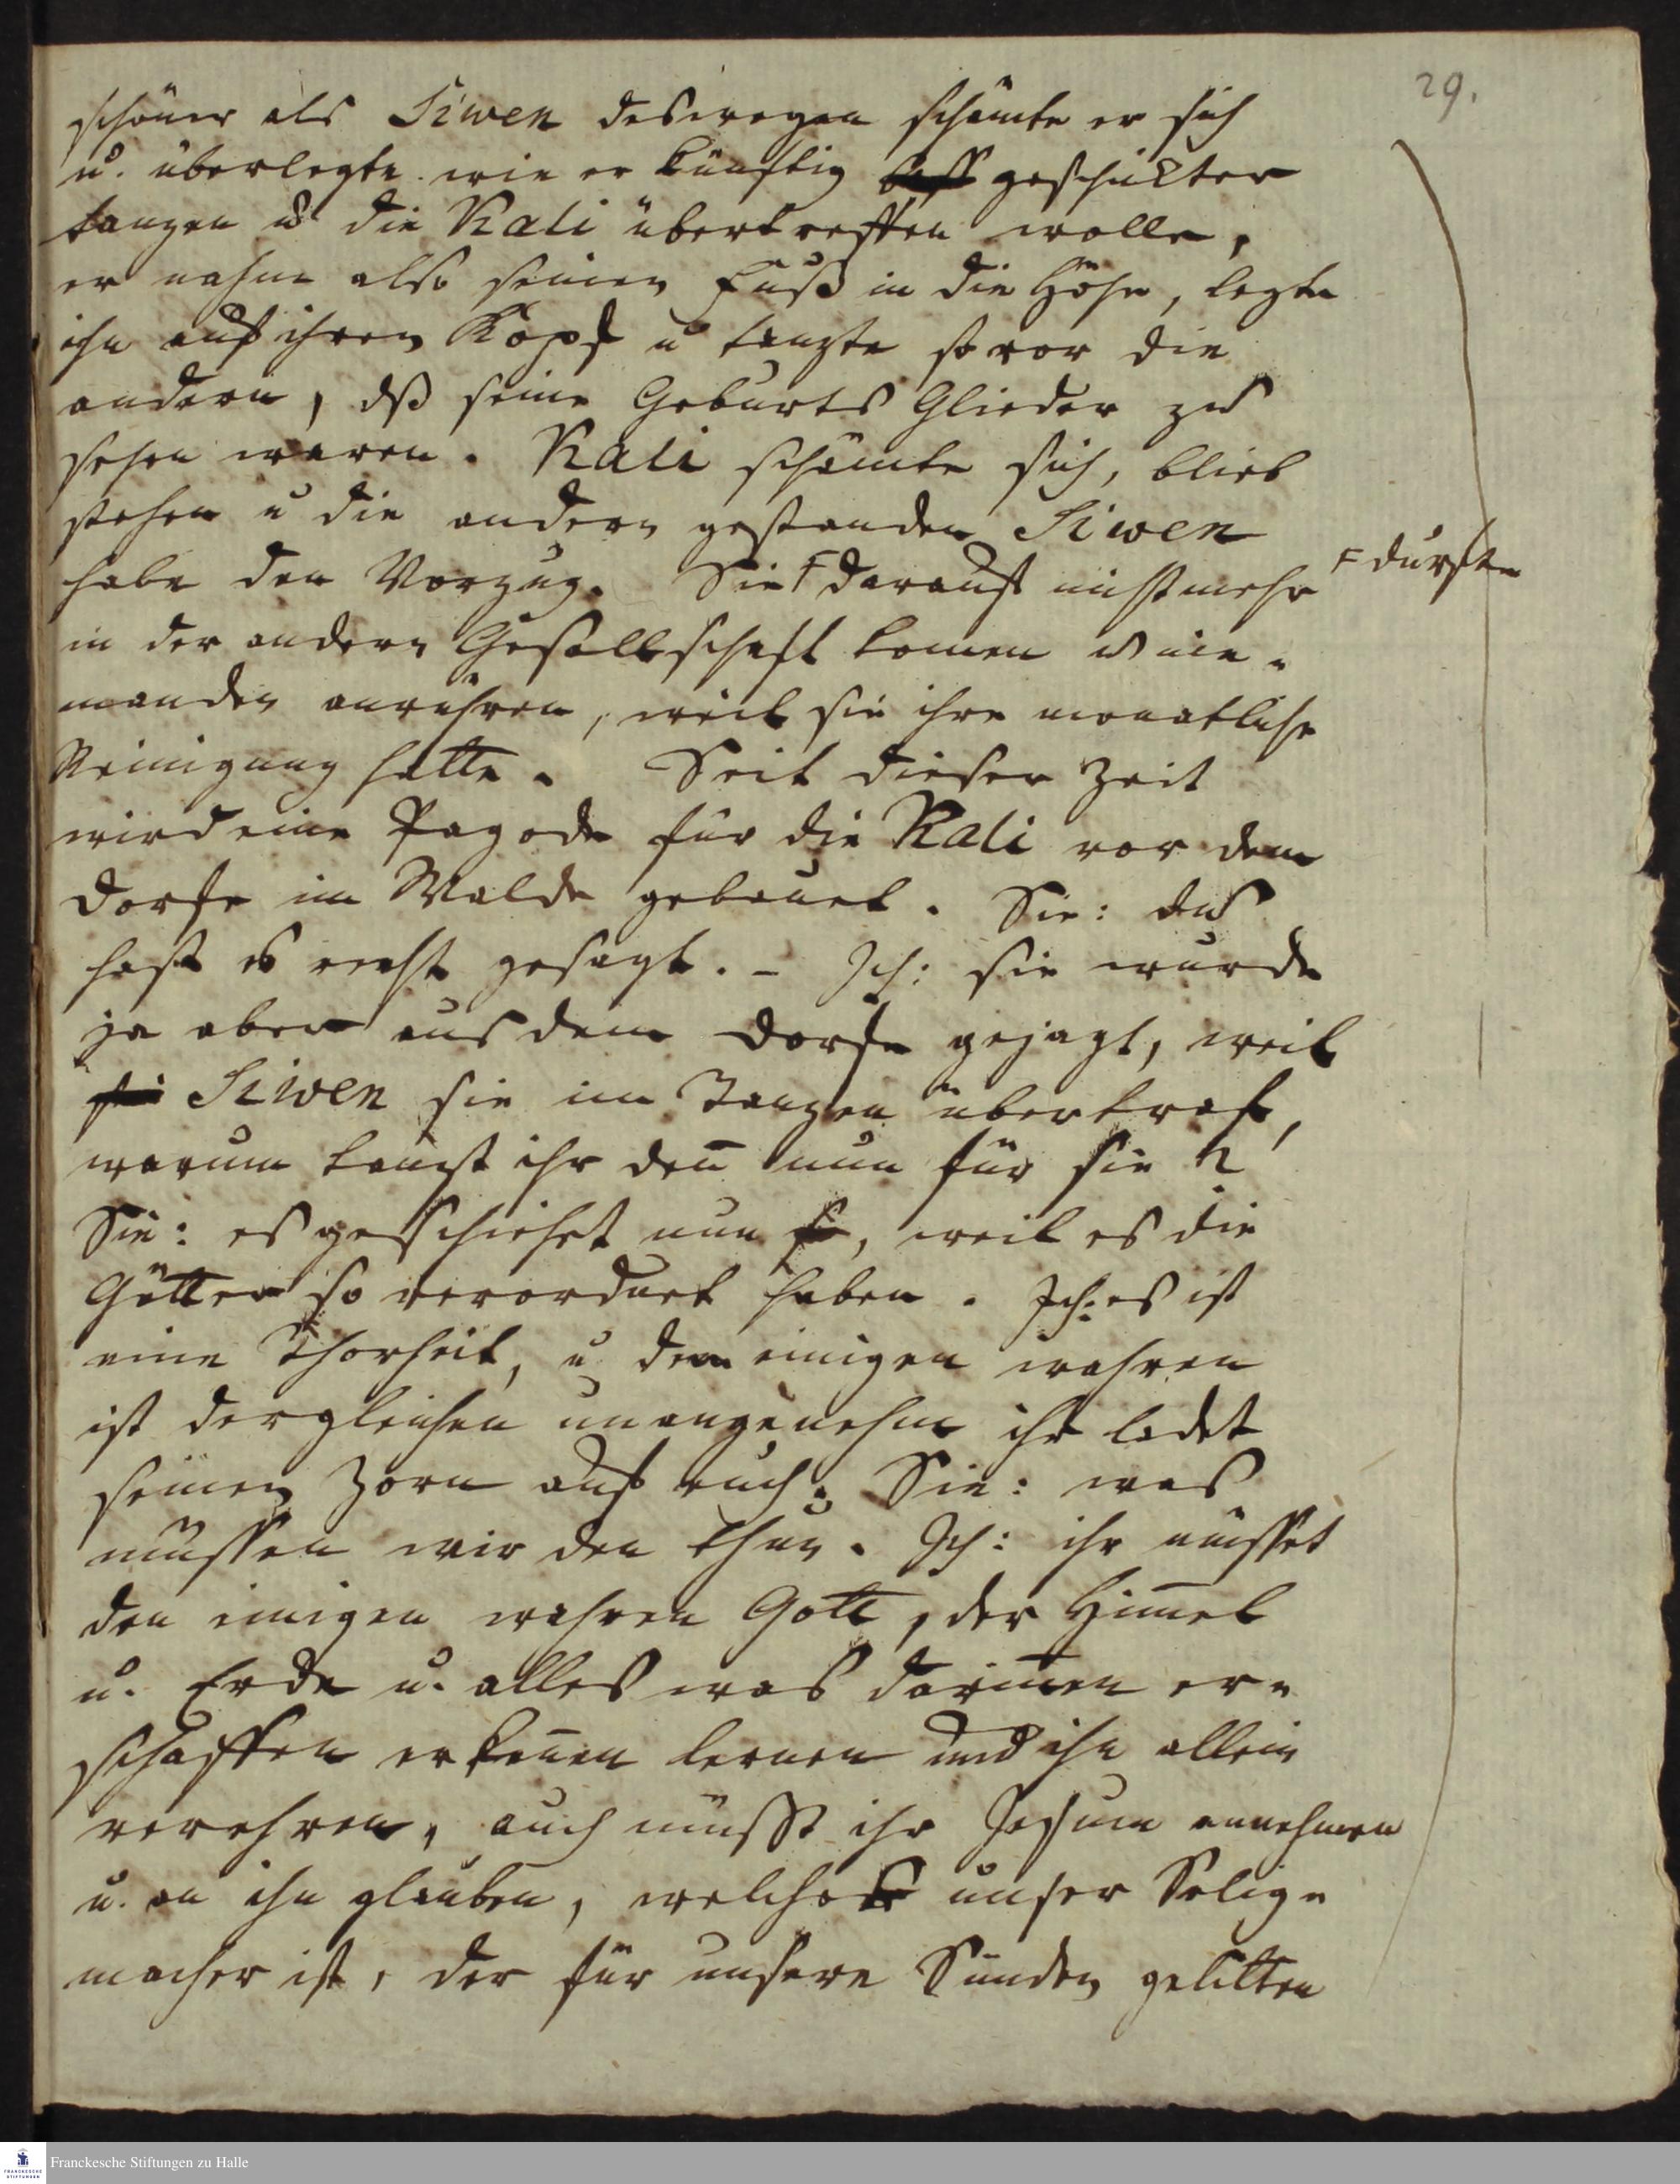 29.
schöner als Siwen deswegen schämte er sich
u. überlegte wie er künftig bess geschikter
tanzen u die Kali übertreffen wolle,
er nahm also seinen Fuß in die Höhe, legte
ihn auf ihren Kopf u tanzte so vor die
andern, dß seine Geburts Glieder zu
sehen waren. Kali schämte sich, blieb
stehen u die andern gestanden Siwen
habe den Vorzug. Sie F darauf nicht mehr
F durfte
in der andern Gesellschaft komen u nie-
manden anrühren, weil sie ihre monatliche
Reinigung hatte. Seit dieser Zeit
wird eine Pagode für die Kali vor dem
Dorfe im Walde gebauet. Sie: du
hast es recht gesagt. - Ich: sie wurde
ja aber aus dem Dorfe gejagt, weil
si Siwen sie im Tanzen übertraf,
warum tanzt ihr deñ nun für sie?
Sie: es geschiehet nun so, weil es die
Götter so verordnet haben. Ich: es ist
eine Thorheit, u dem einigen wahren
ist dergleichen unangenehm ihr ladet
seinen Zorn auf euch. Sie: was
müssen wir den thun. Ich: ihr müsset
den einigen wahren Gott, der Him̄el
u. Erde u. alles was darin̄en er-
schaffen erken̄en lernen und ihn allein
verehren, auch müsst ihr Jesum annehmen
u. an ihn glauben, welcher unser Selig-
macher ist, der für unsere Sünden gelitten
Franckesche Stiftungen zu Halle